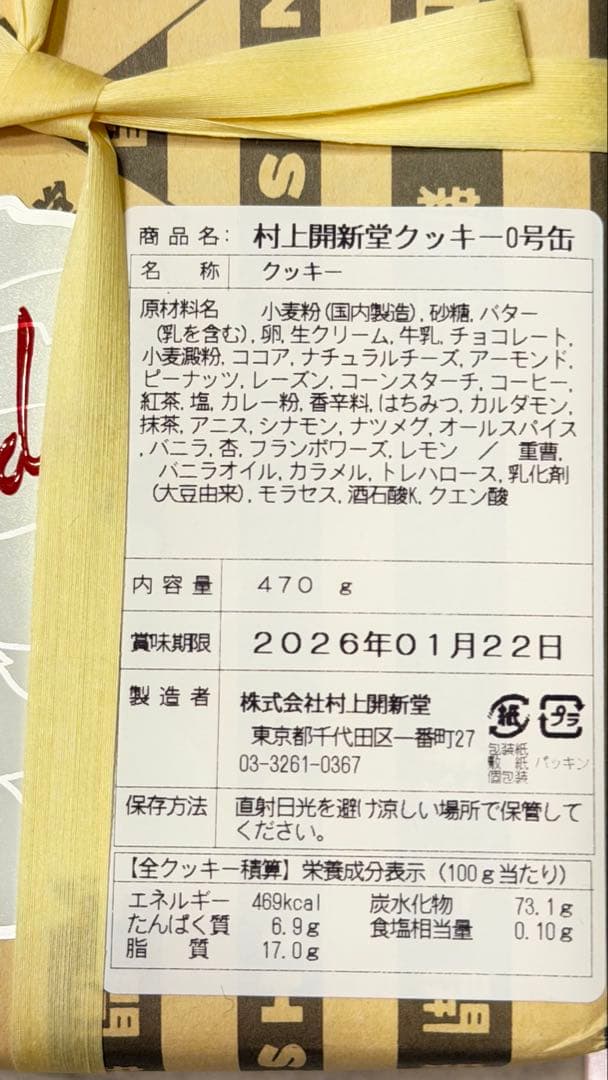 商品名: 村上開新堂クッキー0号缶
名 称 クッキー
原材料名 小麦粉(国内製造), 砂糖, バター
(乳を含む), 卵, 生クリーム, 牛乳, チョコレート,
小麦澱粉, ココア, ナチュラルチーズ, アーモンド,
ピーナッツ, レーズン, コーンスターチ, コーヒー,
紅茶, 塩, カレー粉, 香辛料, はちみつ, カルダモン,
抹茶, アニス, シナモン, ナツメグ, オールスパイス
, バニラ, 杏, フランボワーズ, レモン ／ 重曹,
バニラオイル, カラメル, トレハロース, 乳化剤
(大豆由来), モラセス, 酒石酸K, クエン酸
内容量 470 g
賞味期限 2026年01月22日
製造者 株式会社村上開新堂
東京都千代田区一番町27
03-3261-0367
紙 プラ
包装紙
敷 紙 パッキン
個包装
保存方法 直射日光を避け涼しい場所で保管して
ください。
【全クッキー積算】栄養成分表示 (100g当たり)
エネルギー 469kcal 炭水化物 73.1g
たんぱく質 6.9g 食塩相当量 0.10g
脂 質 17.0g